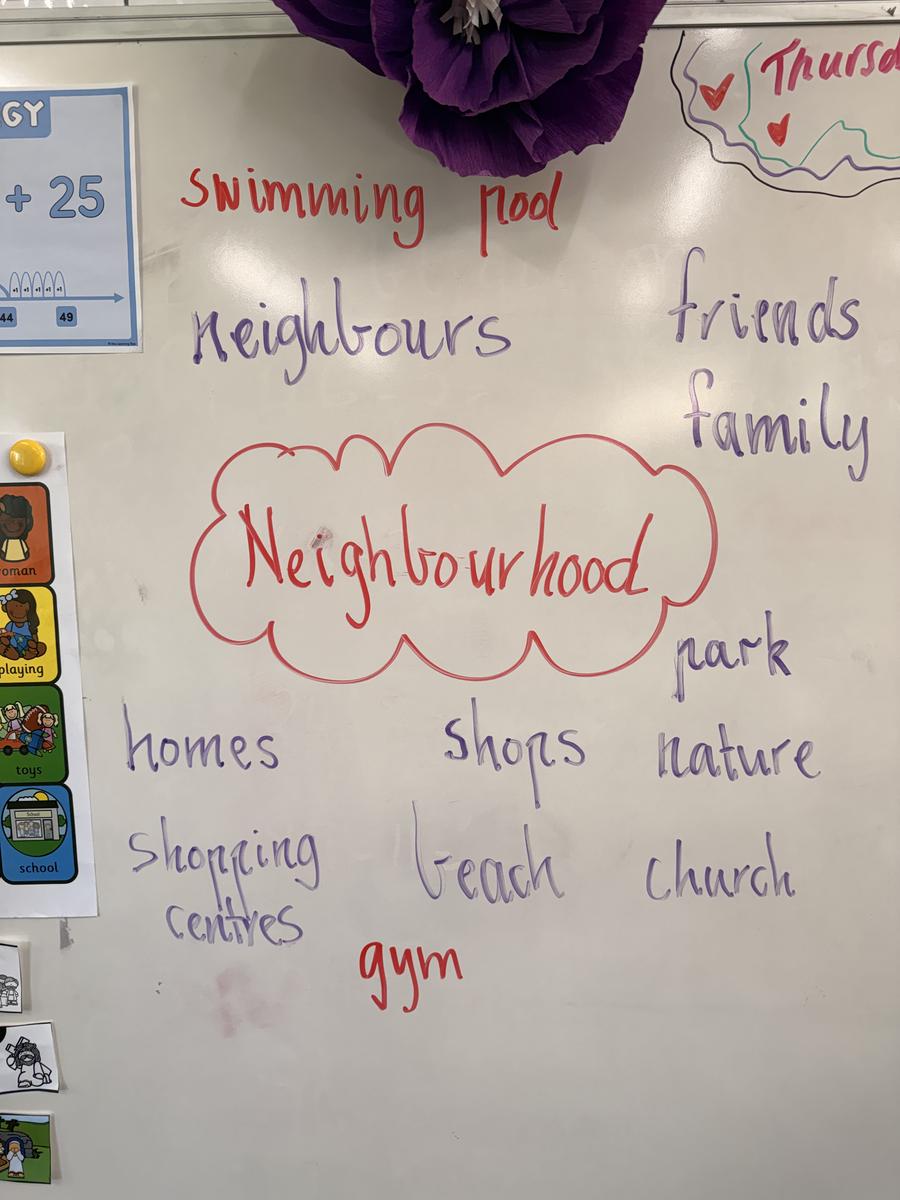 Thursd
GY
+ 25
+1 +1 +1 +1 +1
44 49
swimming pool
neighbours
friends
family
Neighbourhood
park
homes
shops
nature
shopping
centres
beach
church
gym
oman
playing
toys
School
school